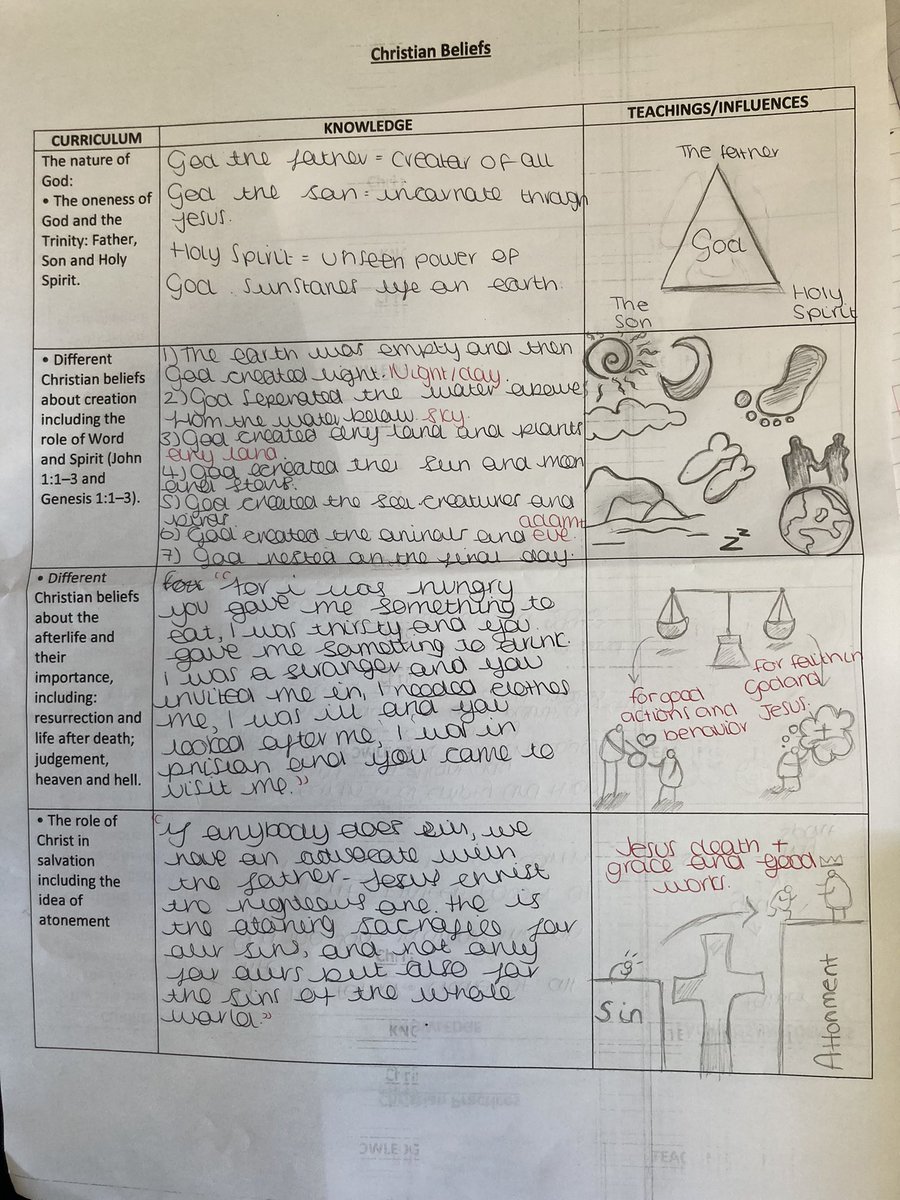 Christian Beliefs
CURRICULUM
KNOWLEDGE
TEACHINGS/INFLUENCES
The nature of
God:
• The oneness of
God and the
Trinity: Father,
Son and Holy
Spirit.
God the father = creater of all
God the son = incarnate through
jesus.
Holy Spirit = unseen power of
God. sunstanes life on earth.
The father
God
The
Son
Holy
Spirit
• Different
Christian beliefs
about creation
including the
role of Word
and Spirit (John
1:1–3 and
Genesis 1:1–3).
1) The earth was empty and then
God created light. Night/day.
2) God seperated the water above
from the water below. sky
3) God created dry land and plants
dry land.
4) God created the sun and moon
and stars.
5) God created the sea creatures and
birds.
6) God created the animals and adam+
eve.
7) God rested on the final day.
z z
• Different
Christian beliefs
about the
afterlife and
their
importance,
including:
resurrection and
life after death;
judgement,
heaven and hell.
"for i was hungry
you gave me something to
eat, I was thirsty and you
gave me something to drink.
I was a stranger and you
invited me in, I needed clothes
me, I was ill and you
looked after me, I was in
prision and you came to
visit me."
for good
actions and
behavior
for faith in
God and
Jesus.
• The role of
Christ in
salvation
including the
idea of
atonement
"If anybody does sin, we
have an advocate with
the father - Jesus christ
the righteous one. He is
the atoning sacrafice for
our sins, and not only
for ours but also for
the sins of the whole
world."
Jesus death +
grace and good
works.
Sin
Attonment